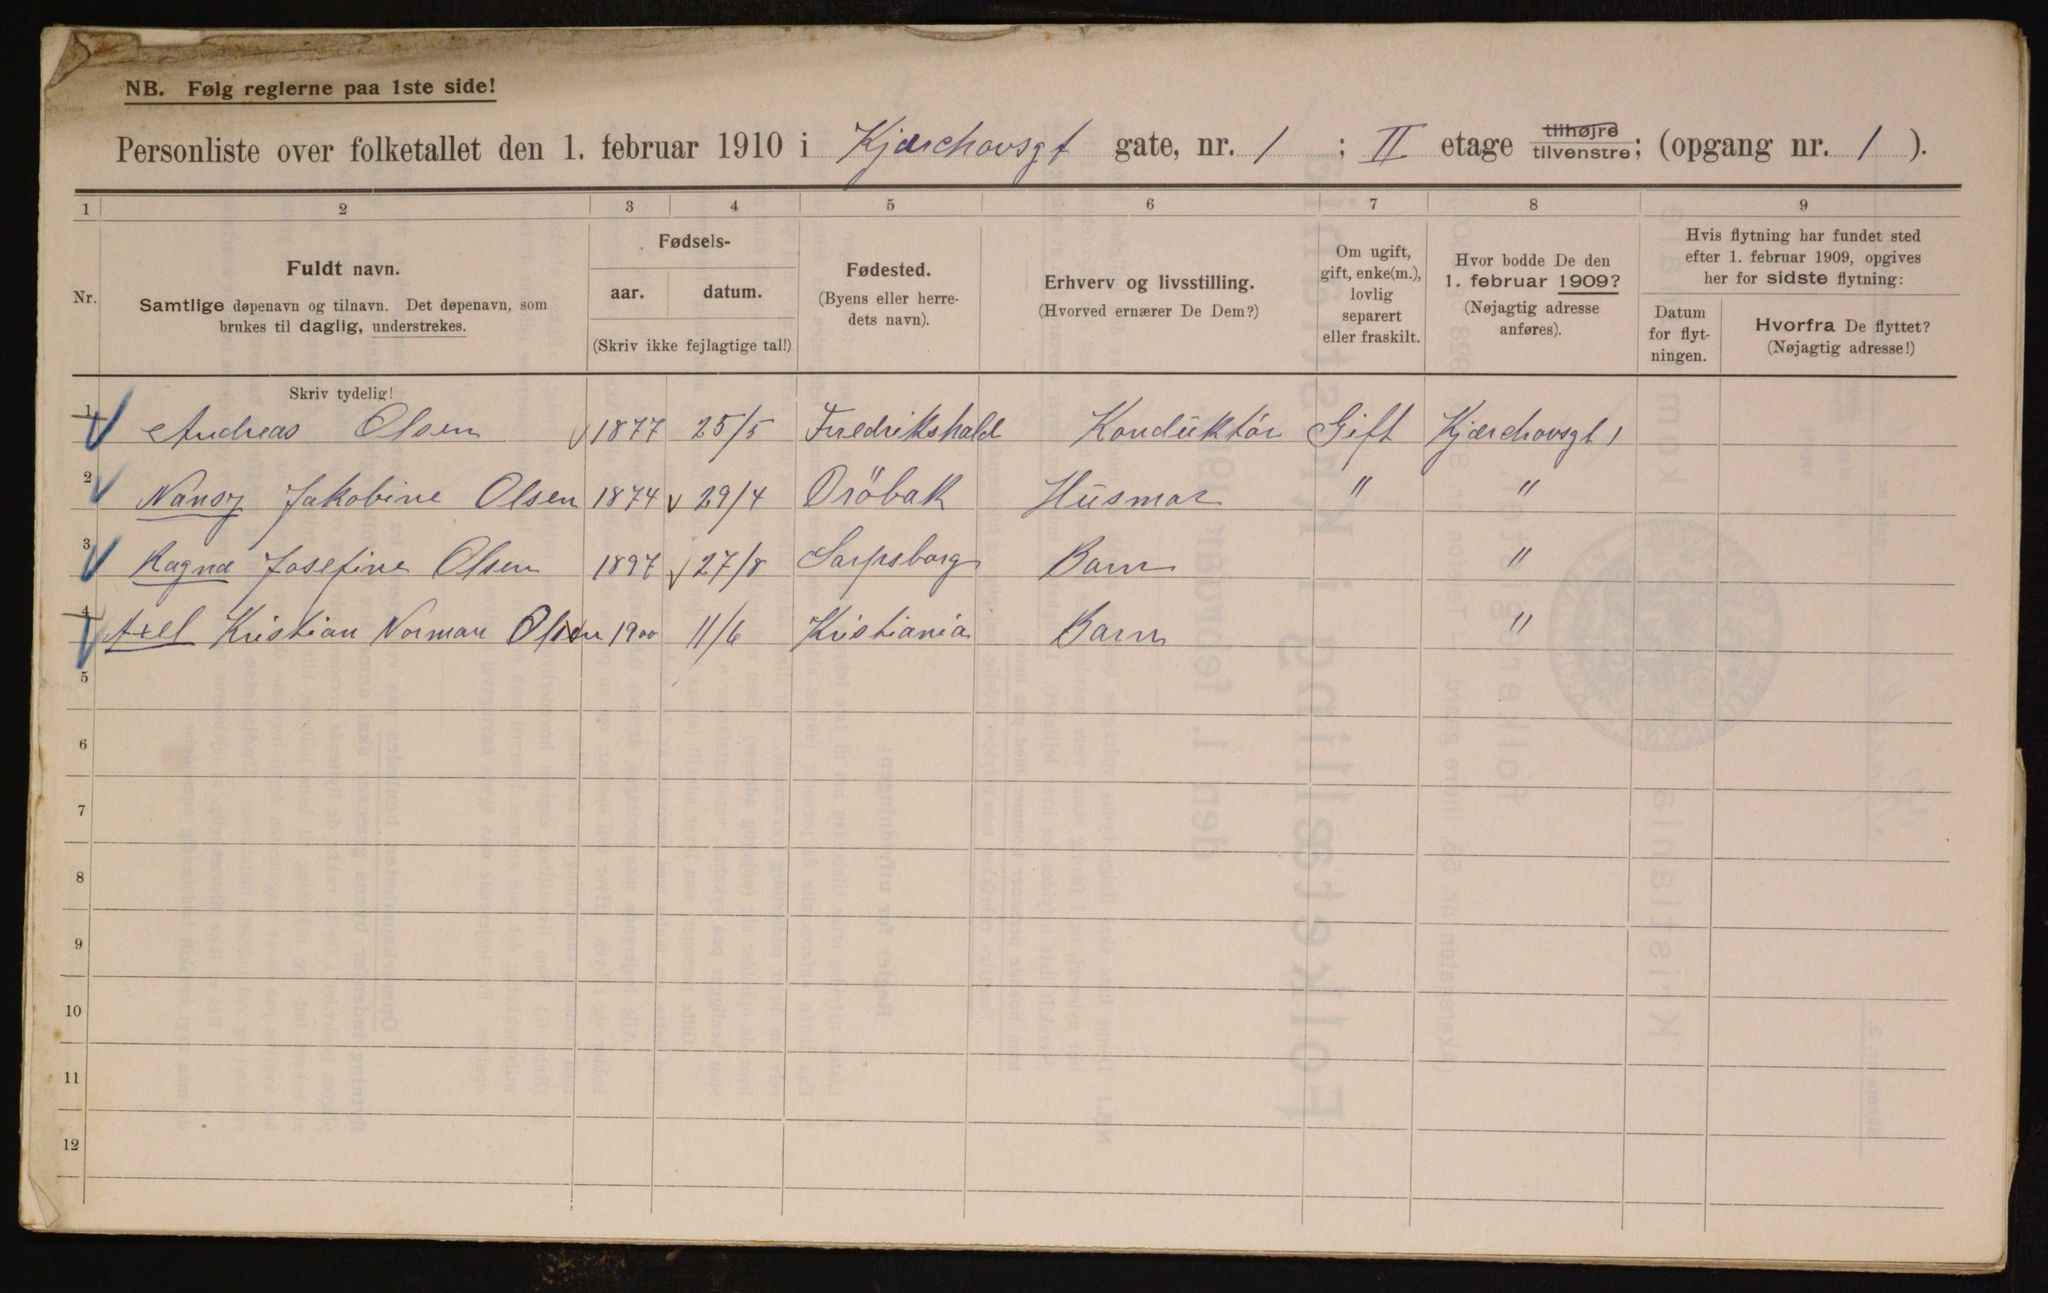 NB. Følg reglerne paa 1ste side!
Personliste over folketallet den 1. februar 1910 i Kjærchovsgt gate, nr. 1 ; II etage tilhøjre tilvenstre; (opgang nr. 1 ).
1 2 3 4 5 6 7 8 9
Nr.
Fuldt navn.
Samtlige døpenavn og tilnavn. Det døpenavn, som
brukes til daglig, understrekes.
Fødsels-
aar. datum.
(Skriv ikke fejlagtige tal!)
Fødested.
(Byens eller herre-
dets navn).
Erhverv og livsstilling.
(Hvorved ernærer De Dem?)
Om ugift,
gift, enke(m.),
lovlig
separert
eller fraskilt.
Hvor bodde De den
1. februar 1909?
(Nøjagtig adresse
anføres).
Hvis flytning har fundet sted
efter 1. februar 1909, opgives
her for sidste flytning:
Datum
for flyt-
ningen.
Hvorfra De flyttet?
(Nøjagtig adresse!)
Skriv tydelig!
1 Andreas Olsen 1877 25/5 Fredrikshald Konduktør Gift Kjærchovsgt 1
2 Nansy Jakobine Olsen 1874 29/4 Dröbak Husmor " "
3 Ragna Josefine Olsen 1897 27/8 Sarpsborg Barn "
4 Axel Kristian Norman Olsen 1900 11/6 Kristiania Barn "
5
6
7
8
9
10
11
12